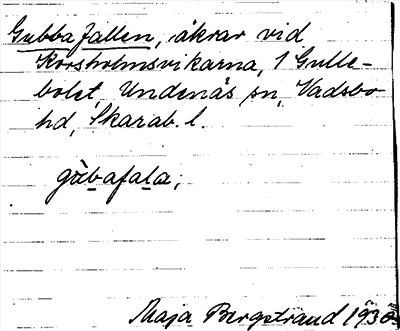 Gubbafallen, åkrar vid
Korsholmsvikarna, 1 Gulle-
bolet, Undenäs sn, Vadsbo
hd, Skarab. l.
gùbafala;
Maja Bergstrand 1930